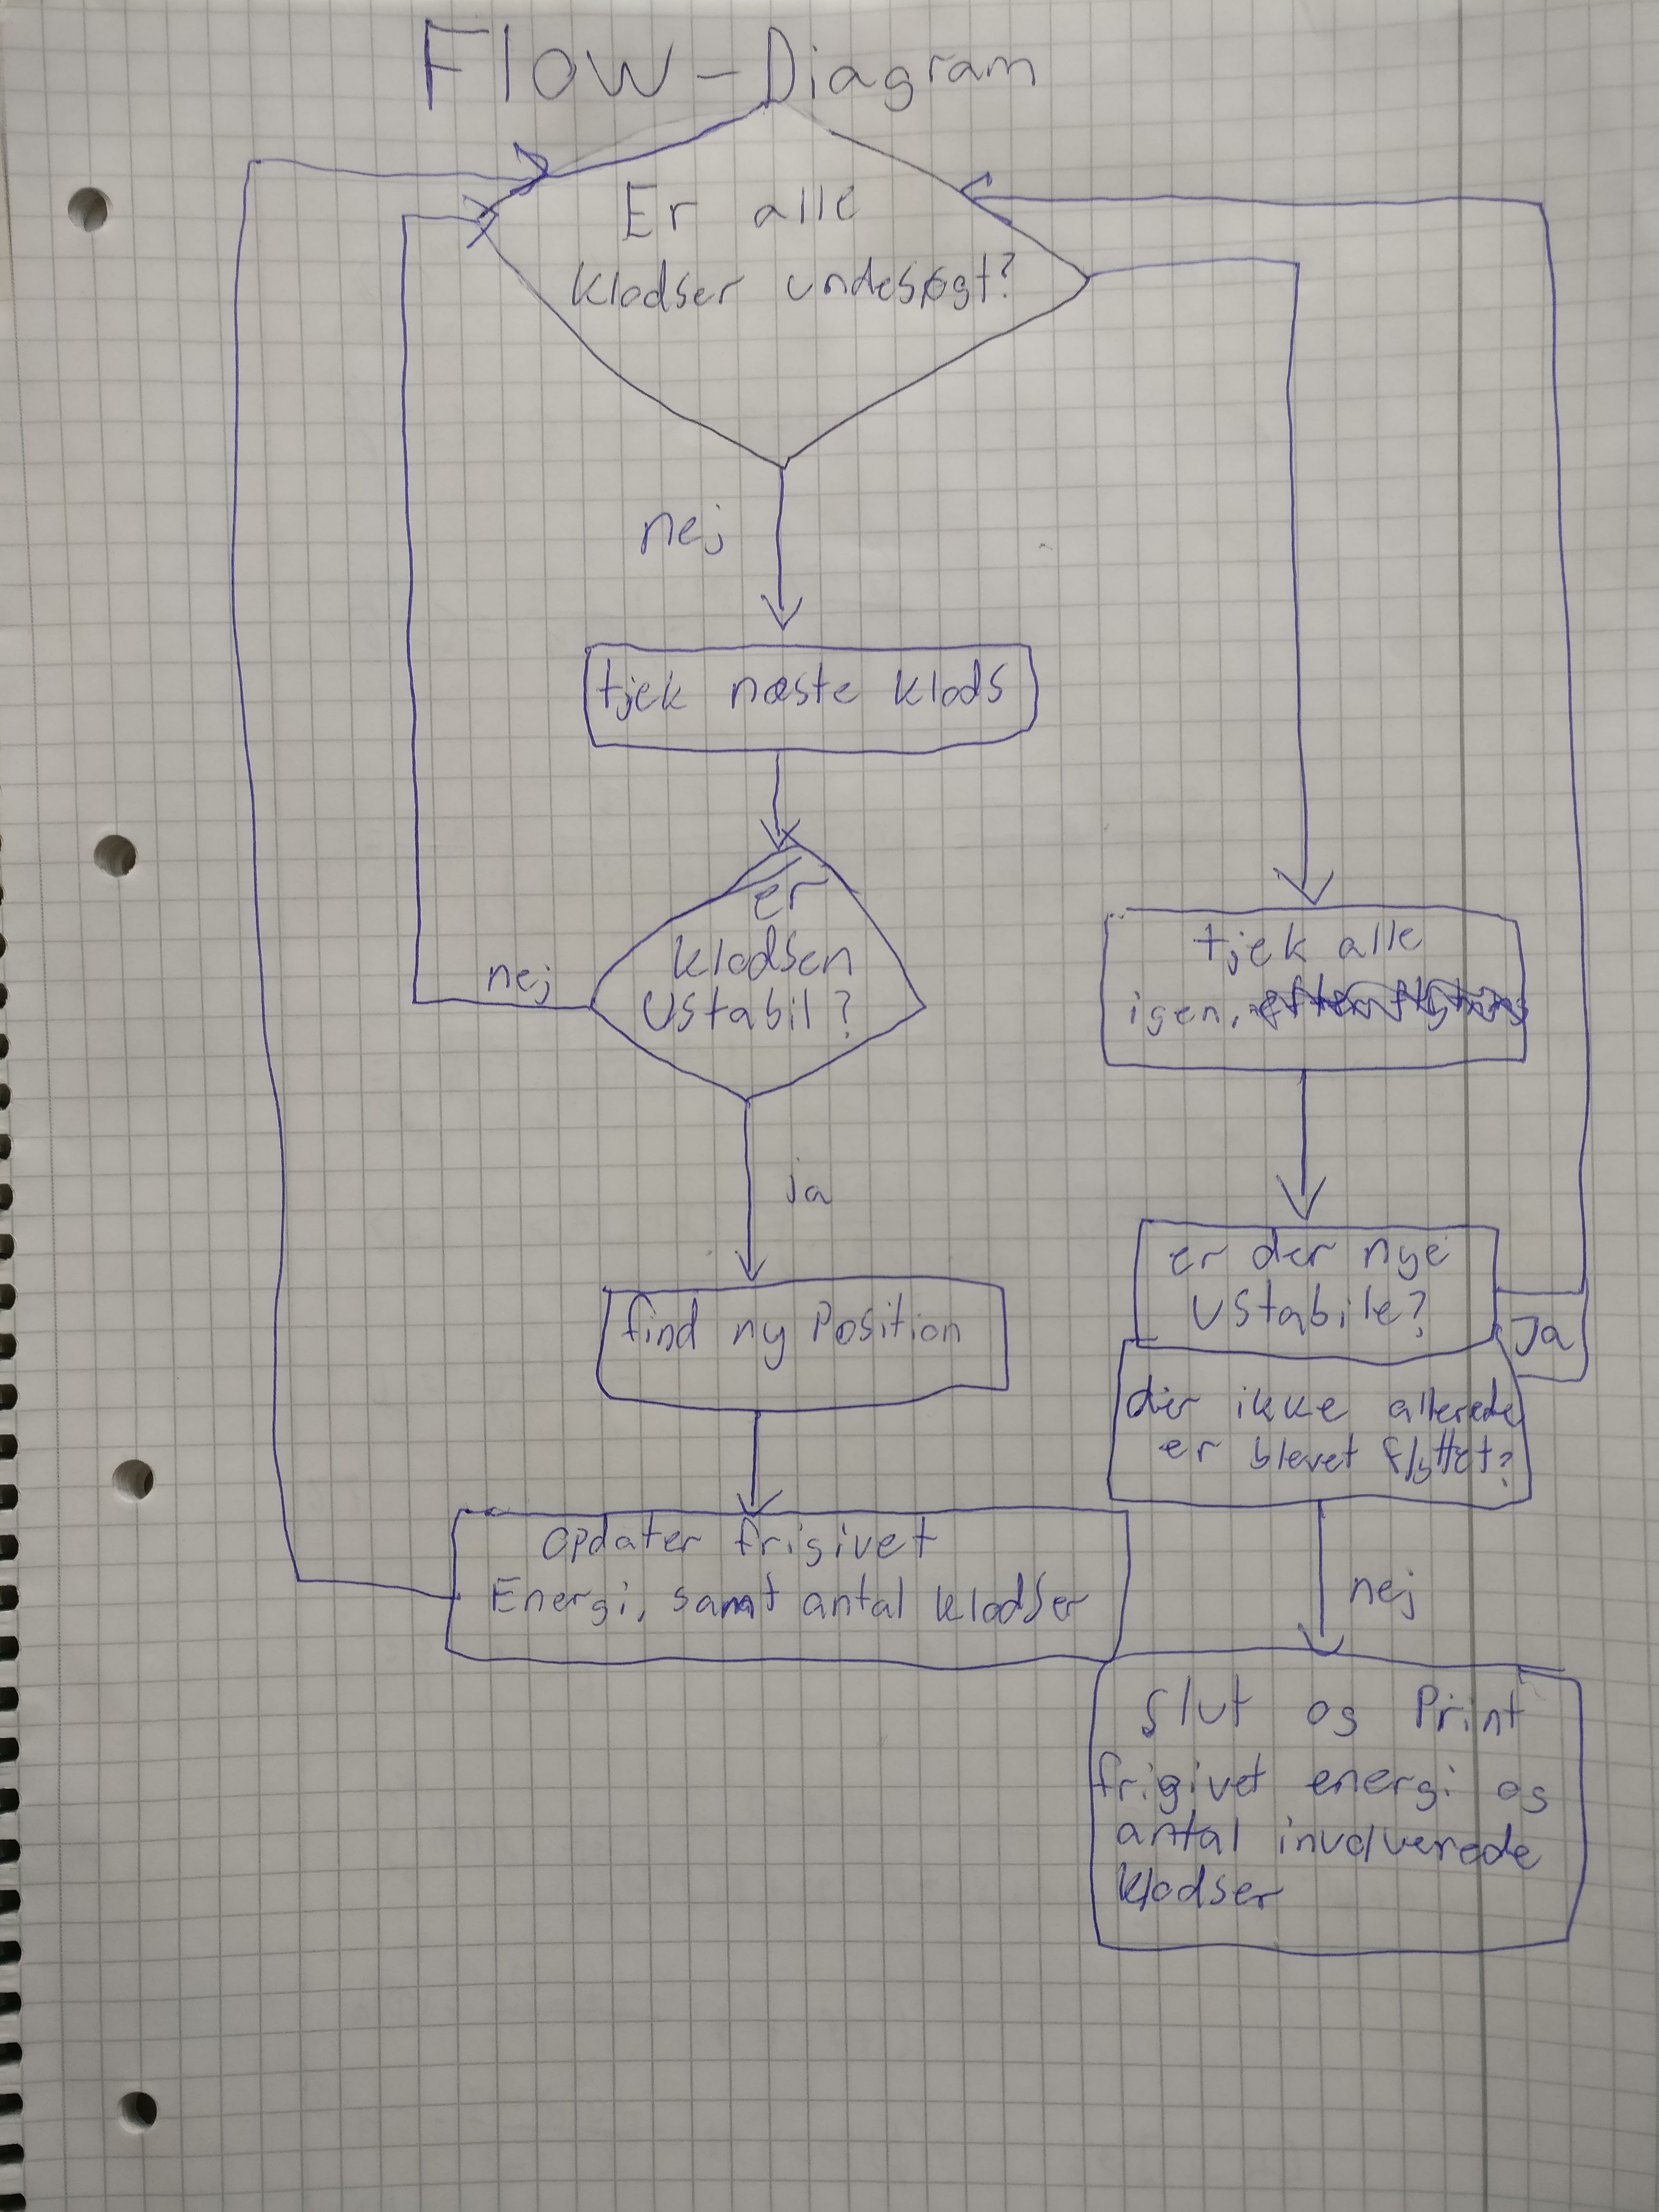 Flow-Diagram
Er alle
klodser undesøgt?
nej
tjek næste klods
er
klodsen
Ustabil?
nej
ja
find ny Position
opdater frigivet
Energi, samt antal klodser
tjek alle
igen,
er der nye
Ustabile?
Ja
der ikke allerede
er blevet flyttet?
nej
Slut og Print
frigivet energi og
antal involverede
klodser